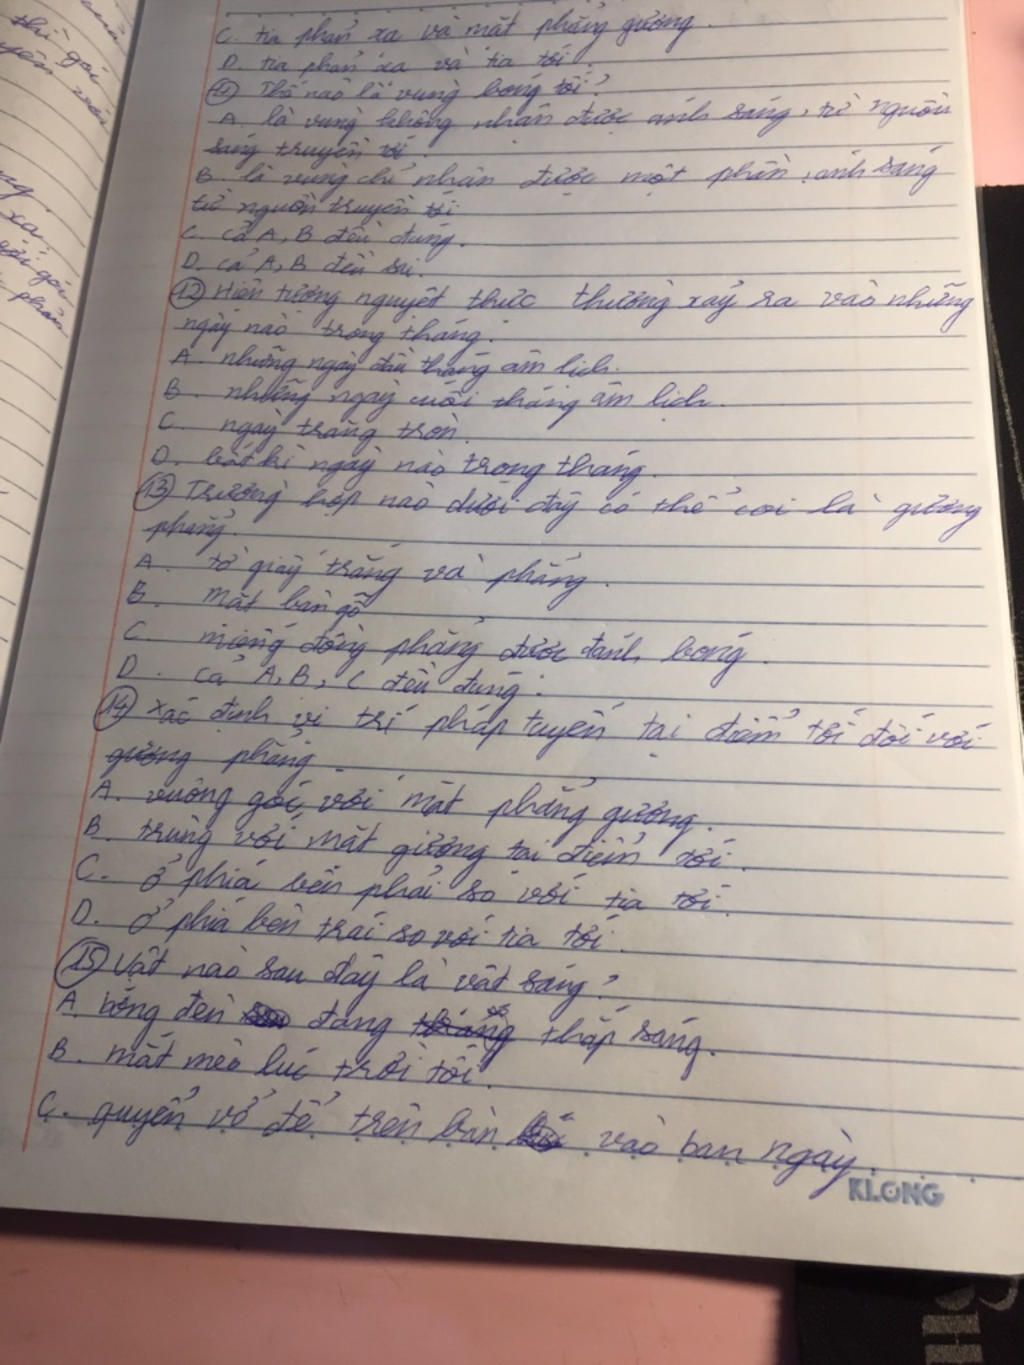 C. tia phản xạ và mặt phẳng gương.
D. tia phản xạ và tia tới.
11 Thế nào là vùng bóng tối?
A. là vùng không nhận được ánh sáng, từ nguồn
sáng truyền tới.
B. là vùng chỉ nhận được một phần, ánh sáng
từ nguồn truyền tới
C. cả A, B đều đúng.
D. cả A, B đều sai.
12 Hiện tượng nguyệt thực thường xảy ra vào những
ngày nào trong tháng.
A. những ngày đầu tháng âm lịch.
B. những ngày cuối tháng âm lịch.
C. ngày trăng tròn.
D. bất kì ngày nào trong tháng.
13 Trường hợp nào dưới đây có thể coi là gương
phẳng.
A. tờ giấy trắng và phẳng.
B. mặt bàn gỗ
C. miếng đồng phẳng được đánh bóng.
D. cả A, B, C đều đúng.
14 Xác định vị trí pháp tuyến tại điểm tới đối với
gương phẳng.
A. vuông góc với mặt phẳng gương.
B. trùng với mặt gương tại điểm tới.
C. ở phía bên phải so với tia tới.
D. ở phía bên trái so với tia tới.
15 Vật nào sau đây là vật sáng?
A. bóng đèn đang thắp sáng.
B. mắt mèo lúc trời tối.
C. quyển vở để trên bàn vào ban ngày.
KLONG